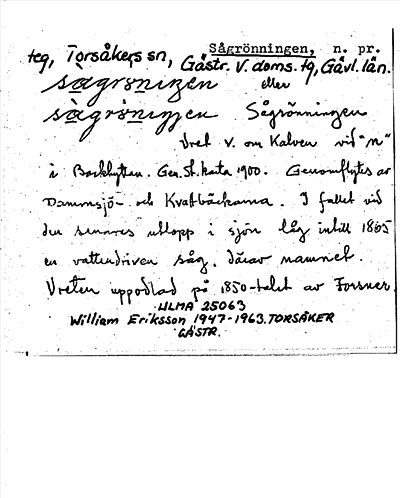 Sågrönningen, n. pr.
teg, Torsåkers sn, Gästr. V. doms. tg, Gävl. län.
sågrönigen eller
sàgrönigen Sågrönningen
Vret v. om Kalven vid "n"
i Backhyttan. Gen.St.karta 1900. Genomflytes av
Dammsjö- och Kvarnbäckarna. I fallet vid
den senares utlopp i sjön låg intill 1865
en vattendriven såg, därav namnet.
Vreten uppodlad på 1850-talet av Forsner.
ULMA 25063
William Eriksson 1947-1963. TORSÅKER
GÄSTR.